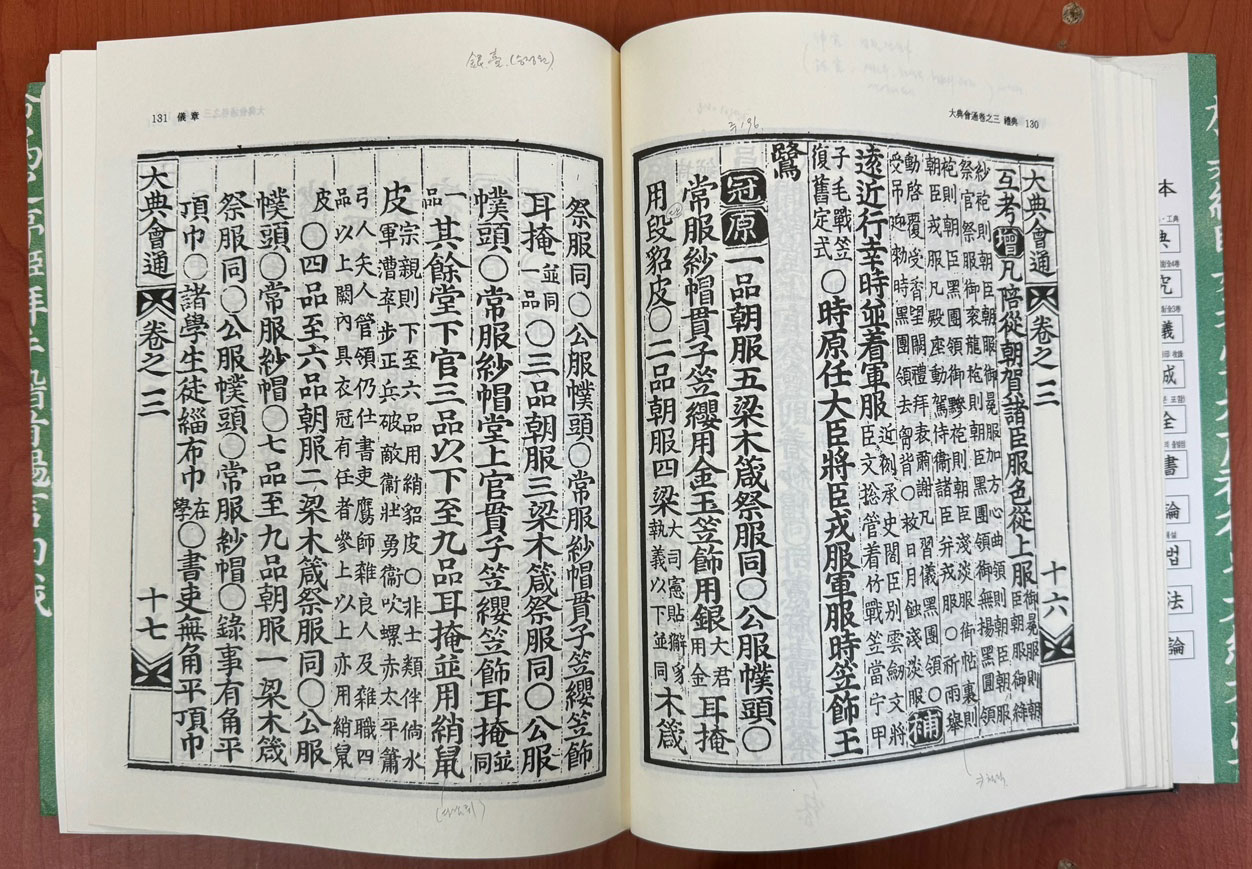 大典會通卷之三 禮典 130
주196
大典會通 卷之三 十六
互考增凡陪從朝賀諸臣服色從上服御冕服則朝
臣朝服御絳
紗袍則朝臣朝服御冕服加方心曲領則朝臣朝服
祭官祭服御袞龍袍則朝臣黑團領御無揚黑圓領
袍則朝臣黑團領御黲袍則朝臣淺淡服○衛裏則
朝臣戎服凡殿座動駕侍衛諸臣幷戎服○祈雨擧
動啓覆受香望闕禮拜表肅謝凡習儀黑團領○
受吊迎勅時黑團領去胷背○救日月蝕淺淡服補
遠近行幸時並着軍服近例承史閣臣別雲劒文將
臣文捴管着竹戰笠當宁甲
子毛戰笠
復舊定式○時原任大臣將臣戎服軍服時笠飾玉
鷺
冠原一品朝服五梁木箴祭服同○公服幞頭○
常服紗帽貫子笠纓用金玉笠飾用銀大君用金耳掩
用段貂皮○二品朝服四梁大司憲貼獬豸
執義以下並同木箴
131 儀章
銀臺(승정원)
祭服同○公服幞頭○常服紗帽貫子笠纓笠飾
耳掩並同一品○三品朝服三梁木箴祭服同○公服
幞頭○常服紗帽堂上官貫子笠纓笠飾耳掩並同
二品其餘堂下官三品以下至九品耳掩並用綃鼠
皮宗親則下至六品用綃貂皮○非士類伴倘水
軍漕卒步正兵破敵衛壯勇衛吹螺赤太平簫
弓人矢人管領仍仕書吏鷹師雜良人及雜職四
品以上闕內具衣冠有任者參上以上亦用綃鼠
皮○四品至六品朝服二梁木箴祭服同○公服
幞頭○常服紗帽○七品至九品朝服一梁木箴
祭服同○公服幞頭○常服紗帽○錄事有角平
頂巾○諸學生徒緇布巾在學○書吏無角平頂巾
大典會通 卷之三 十七